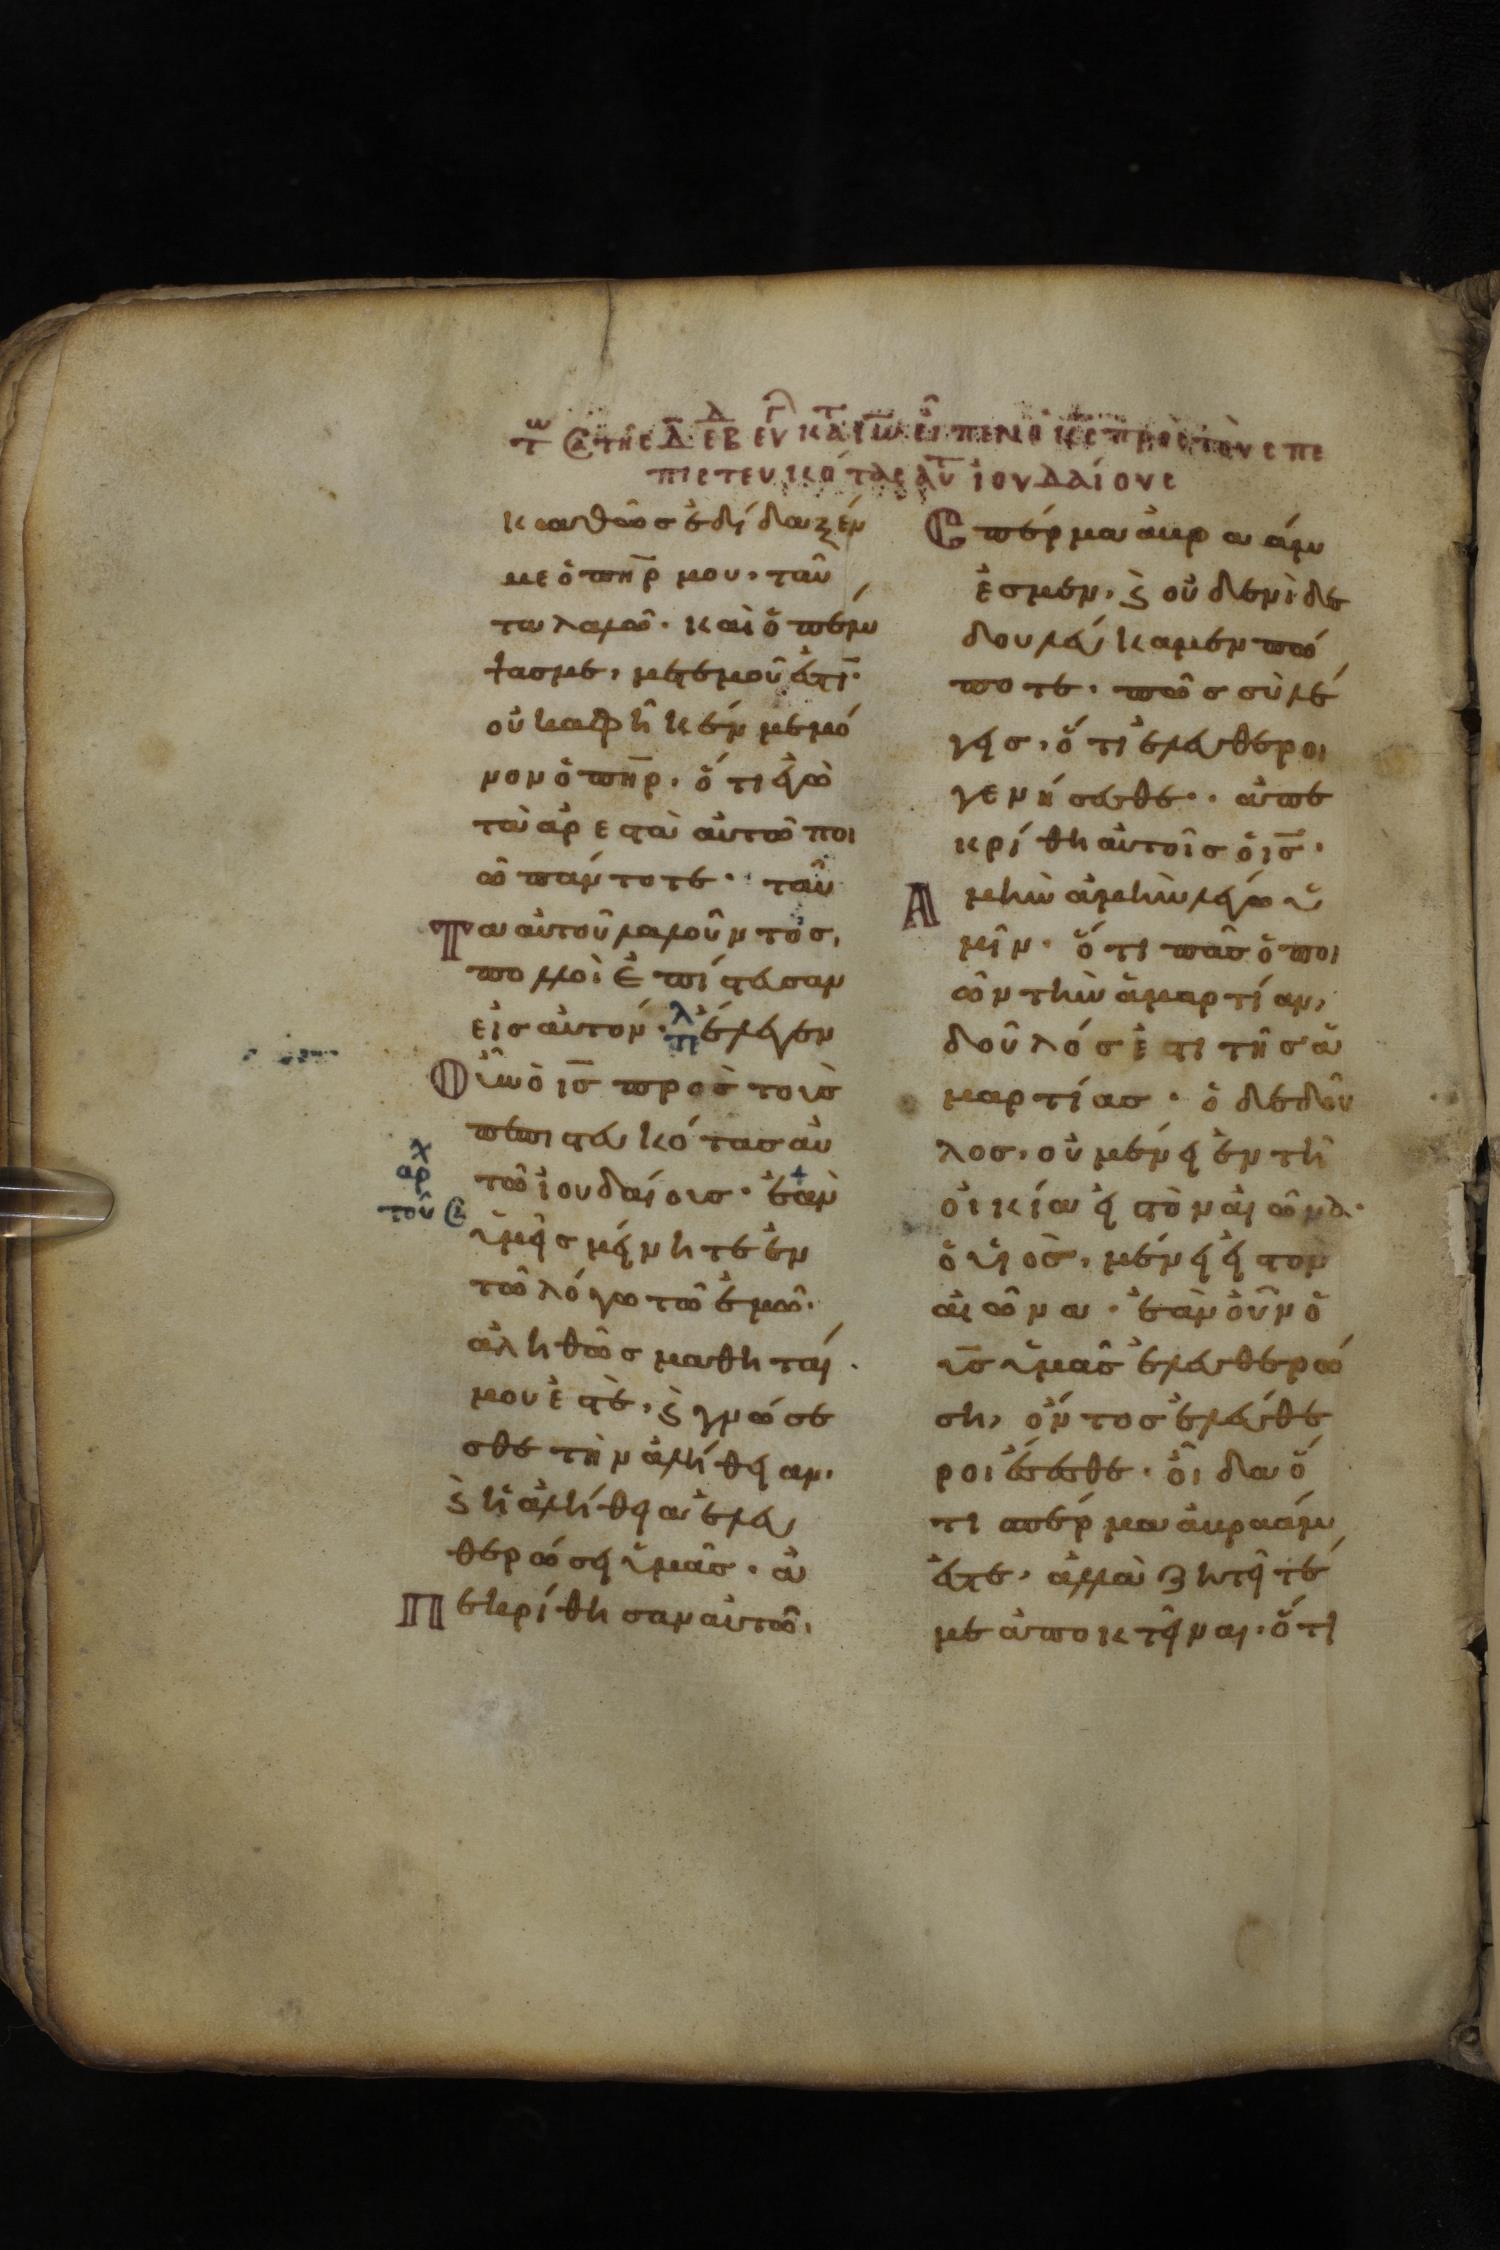 τω Σα της Δ εβδ ευ κατ ιω ειπεν ο κς προς τους πε
πιστευκότας αυτ ιουδαίους
καθὼς ἐδίδαξέν
με ὁ πηρ μου, ταῦ
τα λαλῶ· καὶ ὁ πέμ
ψας με, μετ ἐμοῦ ἐστιν·
οὐκ ἀφῆκέν με μό
νον ὁ πηρ, ὅτι ἐγὼ
τὰ ἀρεστὰ αὐτῶ ποι
ῶ πάντοτε· ταῦ
Τα αὐτοῦ λαλοῦντος,
πολλοὶ ἐπίστευσαν
εἰς αὐτόν· ἔλεγεν
Οὖν ὁ ις πρὸς τοὺς
πεπιστευκότας αὐ
τῶ ἰουδαίους· ἐὰν
χ
αρ
τοῦ Σα
ὑμεῖς μείνητε ἐν
τῶ λόγω τῶ ἐμῶ·
ἀληθῶς μαθηταί
μου ἐστὲ, ϗ γνώσε
σθε τὴν ἀλήθειαν,
ϗ ἡ ἀλήθεια ἐλευ
θερώσει ὑμᾶς· ἀ
Πεκρίθησαν αὐτῶ,
Σπέρμα ἀβραάμ
ἐσμεν, ϗ οὐδενὶ δε
δουλεύκαμεν πώ
ποτε· πῶς σὺ λέ
γεις, ὅτι ἐλεύθεροι
γενήσεσθε·· ἀπε
κρίθη αὐτοῖς ὁ ις·
Ἀμὴν ἀμὴν λέγω ὑ
μῖν· ὅτι πᾶς ὁ ποι
ῶν τὴν ἁμαρτίαν,
δοῦλός ἐστι τῆς ἁ
μαρτίας· ὁ δὲ δοῦ
λος, οὐ μένει ἐν τῆ
οἰκία εἰς τὸν αἰῶνα·
ὁ υἱὸς, μένει εἰς τὸν
αἰῶνα· ἐὰν οὖν ὁ
υς ὑμᾶς ἐλευθερώ
ση, ὄντος ἐλεύθε
ροι ἔσεσθε· οἶδα ὅ
τι σπέρμα ἀβραάμ
ἐστε, ἀλλὰ ζητεῖτέ
με ἀποκτεῖναι· ὅτι